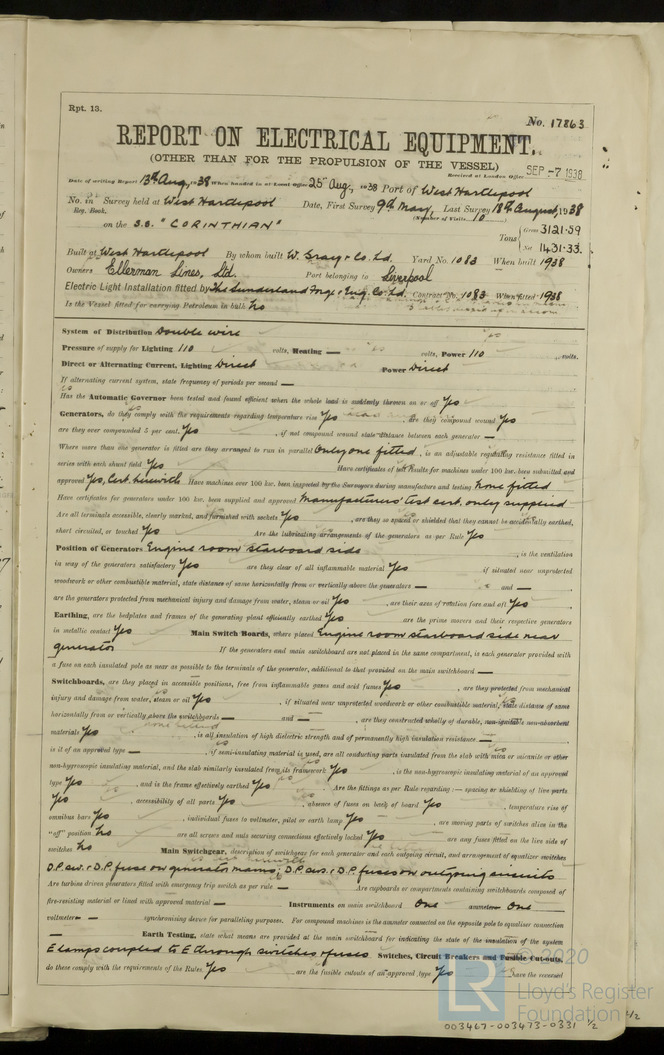 Rpt. 13.
No. 17863
REPORT ON ELECTRICAL EQUIPMENT.
(OTHER THAN FOR THE PROPULSION OF THE VESSEL)
Received at London Office SEP -7 1938
Date of writing Report 13th Aug, 1938 When handed in at Local Office 25th Aug, 1938 Port of West Hartlepool
No. in Survey held at West Hartlepool Date, First Survey 9th May, Last Survey 18th August, 1938
Reg. Book. (Number of Visits 10
on the S.S. "CORINTHIAN" Tons { Gross 3121.59
Net 1431.33.
Built at West Hartlepool By whom built W. Gray & Co. Ld. Yard No. 1083 When built 1938
Owners Ellerman Lines, Ltd. Port belonging to Liverpool
Electric Light Installation fitted by The Sunderland Forge & Eng. Co. Ld. Contract No. 1083 When fitted 1938
Is the Vessel fitted for carrying Petroleum in bulk No
System of Distribution Double wire
Pressure of supply for Lighting 110 volts, Heating — volts, Power 110 volts.
Direct or Alternating Current, Lighting Direct Power Direct
If alternating current system, state frequency of periods per second —
Has the Automatic Governor been tested and found efficient when the whole load is suddenly thrown on or off Yes
Generators, do they comply with the requirements regarding temperature rise Yes , are they compound wound Yes
are they over compounded 5 per cent. Yes , if not compound wound state distance between each generator —
Where more than one generator is fitted are they arranged to run in parallel Only one fitted , is an adjustable regulating resistance fitted in
series with each shunt field Yes Have certificates of test results for machines under 100 kw. been submitted and
approved Yes, Cert. herewith Have machines over 100 kw. been inspected by the Surveyors during manufacture and testing None fitted
Have certificates for generators under 100 kw. been supplied and approved Manufacturers' test cert. only supplied
Are all terminals accessible, clearly marked, and furnished with sockets Yes , are they so spaced or shielded that they cannot be accidentally earthed,
short circuited, or touched Yes Are the lubricating arrangements of the generators as per Rule Yes
Position of Generators Engine room starboard side , is the ventilation
in way of the generators satisfactory Yes are they clear of all inflammable material Yes if situated near unprotected
woodwork or other combustible material, state distance of same horizontally from or vertically above the generators — and — ,
are the generators protected from mechanical injury and damage from water, steam or oil Yes , are their axes of rotation fore and aft Yes
Earthing, are the bedplates and frames of the generating plant efficiently earthed Yes are the prime movers and their respective generators
in metallic contact Yes Main Switch Boards, where placed Engine room starboard side near
generator If the generators and main switchboard are not placed in the same compartment, is each generator provided with
a fuse on each insulated pole as near as possible to the terminals of the generator, additional to that provided on the main switchboard —
Switchboards, are they placed in accessible positions, free from inflammable gases and acid fumes Yes , are they protected from mechanical
injury and damage from water, steam or oil Yes , if situated near unprotected woodwork or other combustible material, state distance of same
horizontally from or vertically above the switchboards — and — , are they constructed wholly of durable, non-ignitable non-absorbent
materials Yes , is all insulation of high dielectric strength and of permanently high insulation resistance —
is it of an approved type — , if semi-insulating material is used, are all conducting parts insulated from the slab with mica or micanite or other
non-hygroscopic insulating material, and the slab similarly insulated from its framework Yes , is the non-hygroscopic insulating material of an approved
type Yes , and is the frame effectively earthed Yes Are the fittings as per Rule regarding :— spacing or shielding of live parts
Yes , accessibility of all parts Yes , absence of fuses on back of board Yes , temperature rise of
omnibus bars Yes , individual fuses to voltmeter, pilot or earth lamp Yes , are moving parts of switches alive in the
"off" position No are all screws and nuts securing connections effectively locked Yes are any fuses fitted on the live side of
switches No Main Switchgear, description of switchgear for each generator and each outgoing circuit, and arrangement of equaliser switches
D.P. sw. & D.P. fuse on generator mains; D.P. sws. & D.P. fuses on outgoing circuits
Are turbine driven generators fitted with emergency trip switch as per rule — Are cupboards or compartments containing switchboards composed of
fire-resisting material or lined with approved material — Instruments on main switchboard One ammeter One
voltmeter — synchronising device for paralleling purposes. For compound machines is the ammeter connected on the opposite pole to equaliser connection
— Earth Testing, state what means are provided at the main switchboard for indicating the state of the insulation of the system
E lamps coupled to E through switches & fuses Switches, Circuit Breakers and Fusible Cut-outs,
do these comply with the requirements of the Rules Yes , are the fusible cutouts of an approved type Yes have the reversed
© 2020
LR
Lloyd's Register
Foundation
003467-003473-0331 1/2